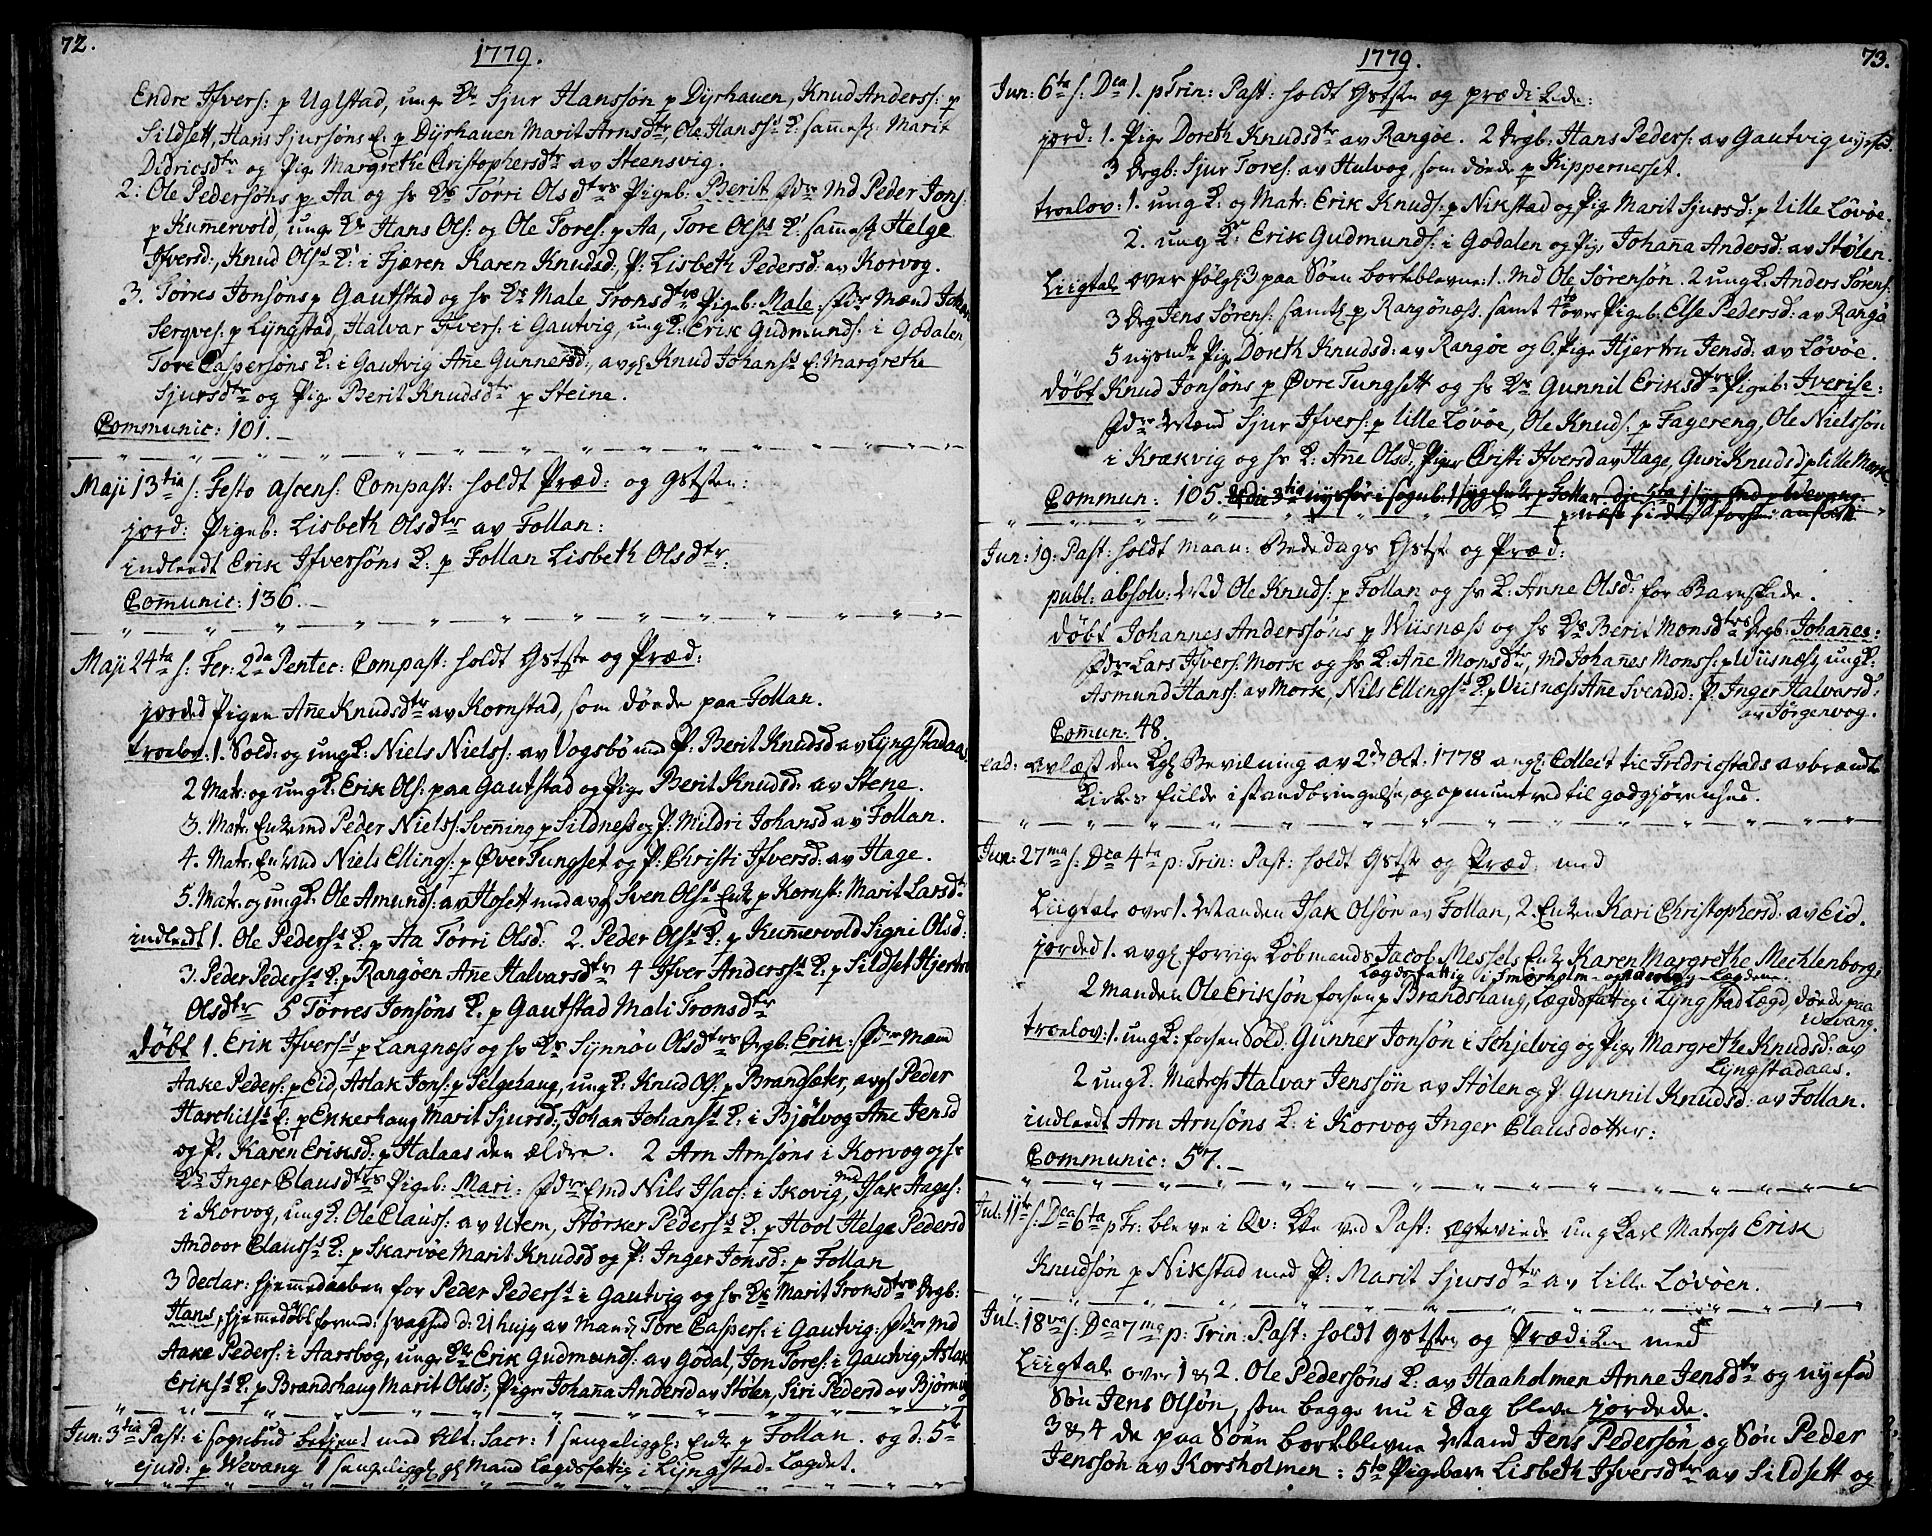 72.
1779.
Endre Ifvers: p Uglstad, unge Kl Sjur Hanssøn p Dyrhauen, Knud Anderss: p
Sildsett, Hans Sjursøns E: p Dyrhauen Marit Arnsdtr, Ole Hanss K: sammest: Marit
Didricsdtr og Pige Margrethe Christophersdtr av Steensvig.
2: Ole Pedersøns p Aa og hs Ks Torri Olsdtrs Pigeb: Berit fdre Md Peder Jons:
p Kummervold, unge Kl Hans Ols: og Ole Tores: p Aa, Tore Olss K: sammest: Helge
Ifversd:, Knud Olss K: i Fjæren Karen Knudsd:, P: Lisbeth Pedersd: av Korvog.
3. Torres Jonsøns p Gautstad og hs Ks Male Tronsdtrs Pigeb: Male: fdre Mænd Johan
Serqves: p Lyngstad, Halvar Ifvers: i Gautvig, ung K: Erik Gudmunds: i Godalen
Tore Caspersøns K: i Gautvig Ane Gunnersd:, avgl Knud Johanss E: Margrethe
Sjursdtr og Pige Berit Knudsdtr p Steine.
Communic: 101.
Maji 13tia s: Festo ascens: Compast: holdt Præd: og Gststen:
jord: Pigeb: Lisbeth Olsdtr av Follan:
indleedt Erik Ifversøns K: p Follan Lisbeth Olsdtr:
Comunic: 136.
Maji 24ta s: Fer: 2da Pentec: Compast: holdt Gstste og Præd:
jorded Pigen Ane Knudsdtr av Kornstad, som døde paa Follan.
troelov: 1. Sold: og ung K: Niels Niels: av Vogsbø med P: Berit Knudsd av Lyngstadaas.
2 Matr: og ung K: Erik Ols: paa Gautstad og Pige Berit Knudsd: av Stene.
3. Matr: Enkemd Peder Niels: Svenning p Sildness og P: Mildri Johansd av Follan.
4. Matr: Enkemd Niels Ellings: p Øver Tungset og P: Christi Ifversd: av Hage.
5. Matr: og ung K: Ole Amunds: av Hosett med avgl Sven Olss Enke p Kornst: Marit Larsdtr
indleedt 1. Ole Peders K: p Aa Torri Olsd: 2. Peder Olss K: p Kummervold Signi Olsd:
3. Peder Peders K: p Rangøen Ane Halvarsdtr 4 Ifver Anderss K: p Sildset Hjertru
Olsdtr 5 Torres Jonsøns K: p Gautstad Mali Tronsdtr
Døbt 1. Erik Ifvers p Langness og hs Ks Synnøv Olsdtrs Drgb: Erik: fdre Mænd
Aake Peders: p Eid, Aslak Jons: p Selgehaug, ung K: Knud Ols: p Brandsæter, avgl Peder
Harchilss E: p Enkerhaug Marit Sjursd:, Johan Johanss K: i Bjølvog Ane Jensd
og P: Karen Eriksd: p Halaas den ældre. 2 Arn Arnsøns i Korvog og hs
Ks Inger Clausdtrs Pigeb: Mari: fdre Emd Nils Isacs: i Skovig, md Isak Aages:
i Korvog, ung K: Ole Clauss: av Utem, Størker Peders K: p Hool Helge Pedersd
Andoor Clauss K: p Skarvøe Marit Knudsd og P: Inger Jonsd: p Follan
3 declar: hjemmedaaben for Peder Peders i Gautvig og hs Ks Marit Tronsdtrs Drgb:
Hans, hjemmedøbt formed: svaghed d: 21 hujg av Mand Tore Caspers: i Gautvig: fdre Md
Aake Peders: i Aarsbog, unge Kl Erik Gudmunds: av Godal, Jon Tores: i Gautvig, Aslak
Erikss K: p Brandshaug Marit Olsd:, Piger Johana Andersd av Stølen, Siri Pedersd av Bjørnevog
Jun: 3tia Past: i sognebud betjent med Alt: Sacr: 1 sengeliggl: Enke p Follan. og d: 5te
ejusd: p Wevang 1 sengeliggl gl Mand Lægdsfattig i Lyngstad-Lægdet.
1779.
73.
Jun: 6ta s: Dca 1. p Trin: Past: holdt Gstste og prædikede:
jord: 1. Pige Doreth Knudsdtr av Rangøe. 2 Drgb: Hans Peders: av Gautvig nyfød.
3 Drgb: Sjur Tores: av Hulvog, som døde p Kippernesset.
troelov: 1. ung K: og Matr: Erik Knuds: p Nikstad og Pige Marit Sjursd: p Lille Løvøe.
2. ung K: Erik Gudmunds: i Godalen og Pige Johana Andersd: av Stølen.
Liigtale over følg: 3 paa Søen bortblevne: 1. Md Ole Sørensøn. 2 ung K: Anders Sørens:
3 Drg Jens Sørens: samtl p Rangønæss. samt 4to over Pigeb: Else Pedersd: av Rangø
5 nysmlt Pige Doreth Knudsd: av Rangøe og 6. Pige Hjertru Jensd: av Løvøe.
Døbt Knud Jonsøns p Øvre Tungsett og hs Ks Gunnil Eriksdtrs Pigeb: Iverise:
fdre Mænd Sjur Ifvers: p Lille Løvøe, Ole Knuds: p Fagereng, Ole Nielssøn
i Krækvig og hs K: Ane Olsd:, Piger Christi Ifversd av Hage, Guri Knudsd p Lille Mork
Commun: 105.
Jun: 19. Past: holdt Maan: Bededags Gstste og Præd:
publ: absolv: Md Ole Knuds: p Follan og hs K: Anne Olsd: for Barnskade.
døbt Johannes Anderssøns p Wiisnæss og hs Ks Berit Monsdtrs Drgb: Johanes:
fdre Lars Ifvers: Mork og hs K: Ane Monsdtr, Md Johanes Monss: p Wiisnæss, ung K:
Asmund Hanss: av Mork, Nils Ellings K: p Viisnæss Ane Svendsd: P: Inger Halvarsd:
av Jørgenvog.
Comun: 48.
ead: avlæst den Kgl Bevilning av 2den Oct: 1778 angl Collect til Fridricstads avbrændte
Kirkes fulde istandbringelse, og opmuntred til godgjørenhed.
Jun: 27ma s: Dca 4ta p: Trin: Past: holdt Gstste og Præd: med
Liigtale over 1. Manden Isak Olsøn av Follan, 2. Enken Kari Christophersd: av Eid.
jorded 1. avgl forrige Købmands Jacob Messels Enke Karen Margrethe Mechlenborg:
2 Manden Ole Eriksøn forhen p Brandshaug, Lægdsfattig i Lyngstad Lægd, døde paa
Wevang.
troelov: 1. ung K: forhen Sold: Gunner Jonsøn i Schjelvig og Pige Margrethe Knudsd: av
Lyngstadaas.
2 ung K: Matros Halvar Jenssøn av Stølen og P Gunnil Knudsd: av Follan.
indleedt Arn Arnsøns K: i Korvog Inger Clausdotter:
Communic: 57.
Jul: 11te s: Dca 6ta p Tr: bleve i Qv: Kke ved Past: ægteviede ung Karl Matros Erik
Knudsøn p Nikstad med P: Marit Sjursdtr av Lille Løvøen.
Jul: 18va s: Dca 7ma p: Trin: Past: holdt Gststen og Prædiken med
Liigtale over 1 & 2. Ole Pedersøns K: av Haaholmen Anne Jensdtr og nyefød
Søn Jens Olsøn, som begge nu i Dag bleve jordede.
3 & 4 de paa Søen bortblevne Mand Jens Pedersøn, og Søn Peder
Jenssøn av Korsholmen: 5to Pigebarn Lisbeth Ifversdtr av Sildsett og